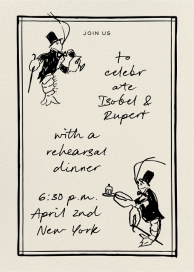 JOIN US
to
celebr
ate
Isobel &
Rupert
with a
rehearsal
dinner
6:30 p.m.
April 2nd
New York